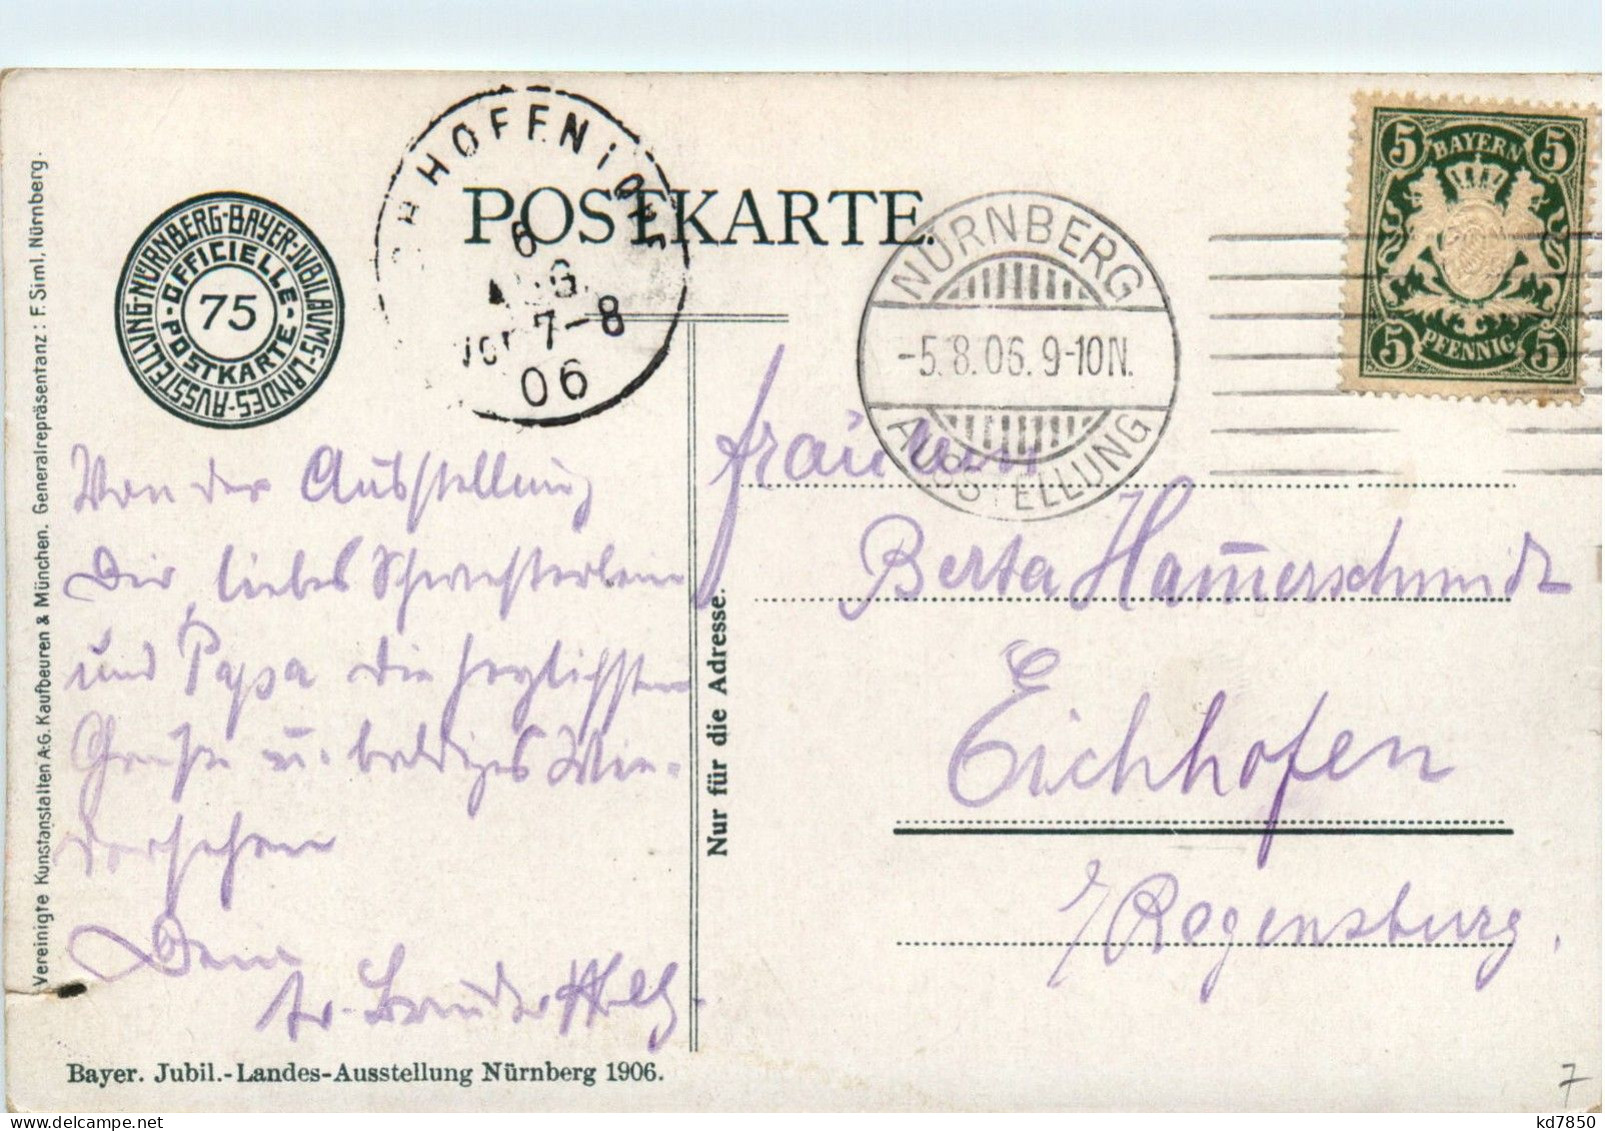 POSTKARTE.
NÜRNBERG·BAYER·JUBILÄUMS·LANDES·AUSSTELLUNG
OFFICIELLE
75
POSTKARTE
HHOFFEN
6
AUG.
VOR 7-8
06
NÜRNBERG
-5.8.06.9-10N.
AUSSTELLUNG
5 BAYERN 5
5 PFENNIG 5
Vereinigte Kunstanstalten A·G. Kaufbeuren & München. Generalrepräsentanz: F. Siml, Nürnberg.
Von der Ausstellung
Dir, liebes Schwesterlein
und Papa die herzlichsten
Grüße u. baldiges Wie-
dersehen
Dein
tr. Bruder
Nur für die Adresse.
Fräulein
Berta Ham̅erschmidt
Eichhofen
b/Regensburg.
Bayer. Jubil.-Landes-Ausstellung Nürnberg 1906.
7
kd7850